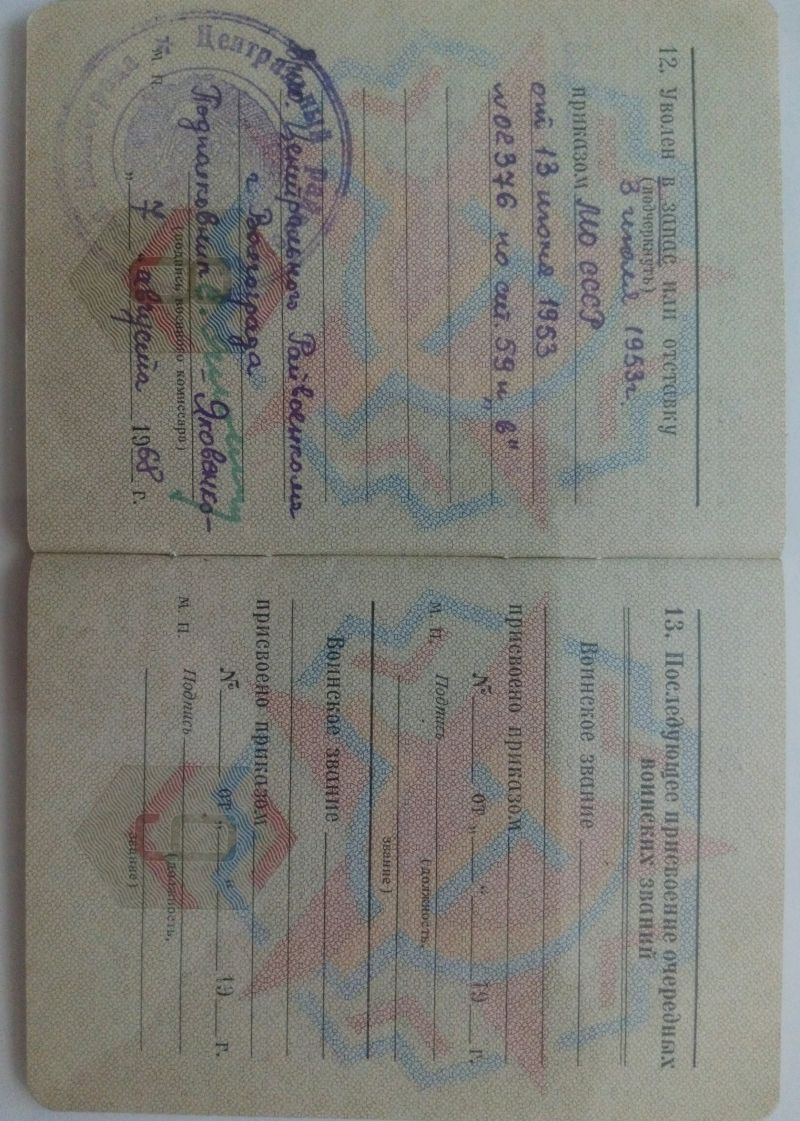 12. Уволен в запас или отставку
(подчеркнуть)
3 июля 1953г.
приказом МО СССР
от 13 июня 1953
№02376 по ст. 59 п „в"
Центрального Райвоенкома
г. Волгограда
Подполковник Яковенко
(подпись военного комиссара)
М. П.
„ 7 " августа 1968 г.
Центральный рай
13. Последующее присвоение очередных
воинских званий
Воинское звание
присвоено приказом
№ от „ " 19 г.
М. П. Подпись
(должность,
звание)
Воинское звание
присвоено приказом
№ от „ " 19 г.
М. П. Подпись
(должность,
звание)